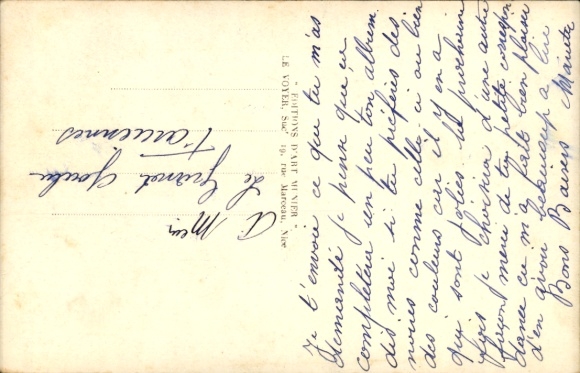 Je t'envoie ce que tu m'as
demandé je pense que ça
completera un peu ton album.
dis moi si tu préfères des
noires comme celle ci ou bien
des couleurs car il y en a
qui sont jolies la prochaine
fois je choisirai d'une autre
façon merci de ta petite correspon
dance ça m'a fait bien plaisir
d'en avoir beaucoup a lire
Bons Baisers Mainette
"EDITIONS D'ART MUNIER"
LE VOYER, Sucr 19, rue Marceau, Nice
A Meur
Le
Varennes